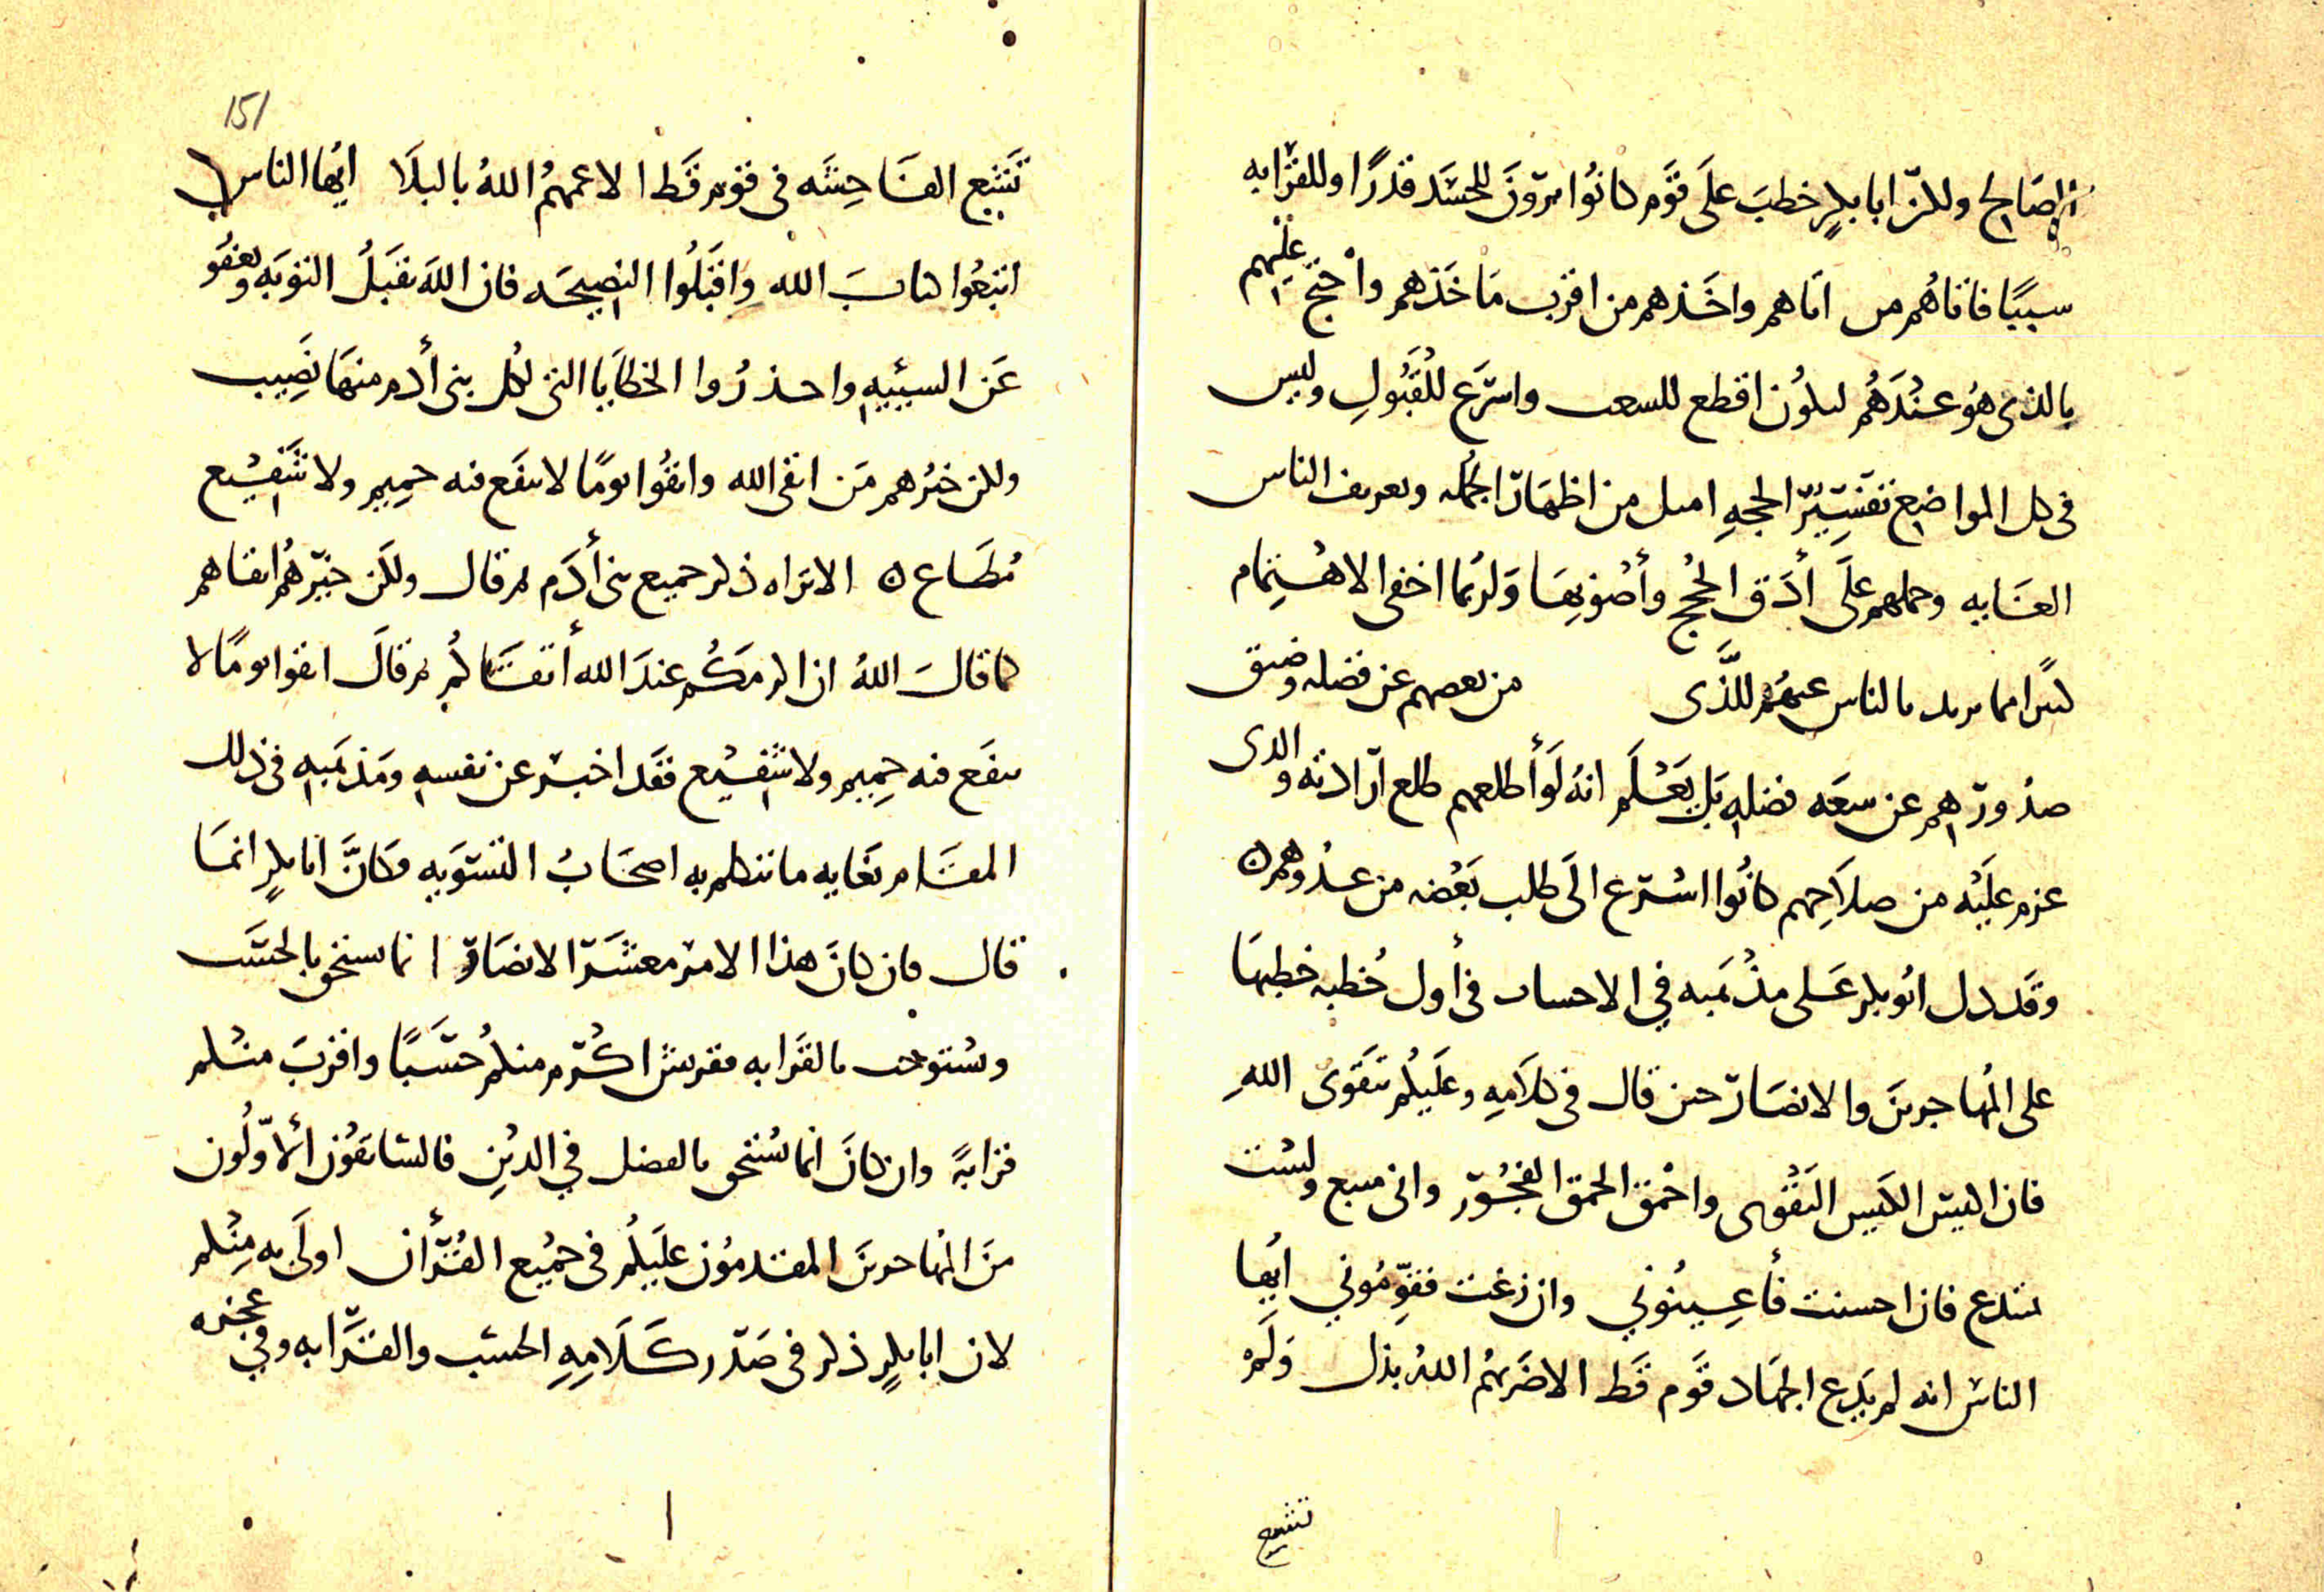 الصالح ولكن ابا بكرٍ خطبَ علَى قوَم كانُوا يرَونَ للحسَب قدرًا وللقرابه
سببًا فاتاهُم من اتاهم واخَذهم من اقرب مَاخَذهم واحتج عليهم
بالذى هوُ عندَهُم ليكُون اقطع للشغب واسرَع للقَبُولِ وليس
فى كل المواضِع تفسيرُ الحجهِ امثل من اظهَار الجُمله وتعريف الناس
الغَايه وحملهم علَى أدَق الحُجج وأصْوبِهَا وَلربما اخفى الامام
كثيرًا مما يريد بالناس عنهُم للَّذى من بعضهم عن فضله وضيق
صدُورهِم عن سعَه فضلهِ بَل يَعْلَم انهُ لَو أطلعهم طلع ارادته والذى
عزم عليَه من صلاَحِهم كانُوا اسْرع الَى طلب بَعْضه من عدُوهم ن
وقَد دل ابُو بكر عَلى مذْهَبه فِي الاحساب فى أول خُطبه خطبهَا
على المُهاجرينَ والانصَار حين قال فى كلاَمِهِ وعَليكُم بتَقوَى اللهِ
فان اكيسَ الكيس التَقْوى واحْمق الحمق الفجُور وانى متبع ولسْت
بمبتدع فان احسنت فأعِينُونِي وان زغت فقوِّمُونِي ايُها
الناس انه لم يَدع الجهَاد قوَم قَط الا ضَربهُم اللهُ بذل وَلَم
تشيع
151
تَشِع الفَاحِشَه فى قوَم قَط الا عمهُم اللهُ بالبلَا ايُها الناس
اتبعُوا كتابَ الله وِاقبَلُوا النصِيحَه فان اللهَ يقبَلُ التوبَه ويعْفُو
عَن السيئهِ واحذرُوا الخطَايَا التى لكُل بنى أدم منهَا نَصِيب
ولكن خيرُهم مَن اتقى الله واتقُوا يومًا لا ينفَع فيه حمِيم ولا شَفِيْع
مُطَاع ن الا تراه ذكر جميع بنى أدَم ثم قال ولكَن خيرهُم اتقاهم
كما قالَ اللهُ ان اكرمَكُم عندَ الله أتقَاكُم ثم قالَ اتقوا يومًا لا
ينفَع فيه حِميم ولا شَفِيْع فقَد اخبَر عن نفسهِ ومَذهَبهِ فى ذلك
المقَام بغَايه ما يتكلم به اصحَابُ التسْويه وكانَّ ابا بكرٍ انمَا
قال فان كانَ هذا الامر معشَر الانصَار انما يستحق بالحسَب
ويُستوجب بالقَرابه فقريش اكْرم منكُم حسَبًا واقربَ منكم
قرابهً وان كانَ انما يُستحق بالفضل فِي الديْنِ فالسَابقُون الأوّلُون
منَ المُهاجرينَ المقدمُون عليَكُم فى جميْع القُرْأن اولَى به مِنْكم
لان ابا بكرٍ ذكر فى صَدْر كلَامِهِ الحسَب والقَرَابه وفِي عجزه